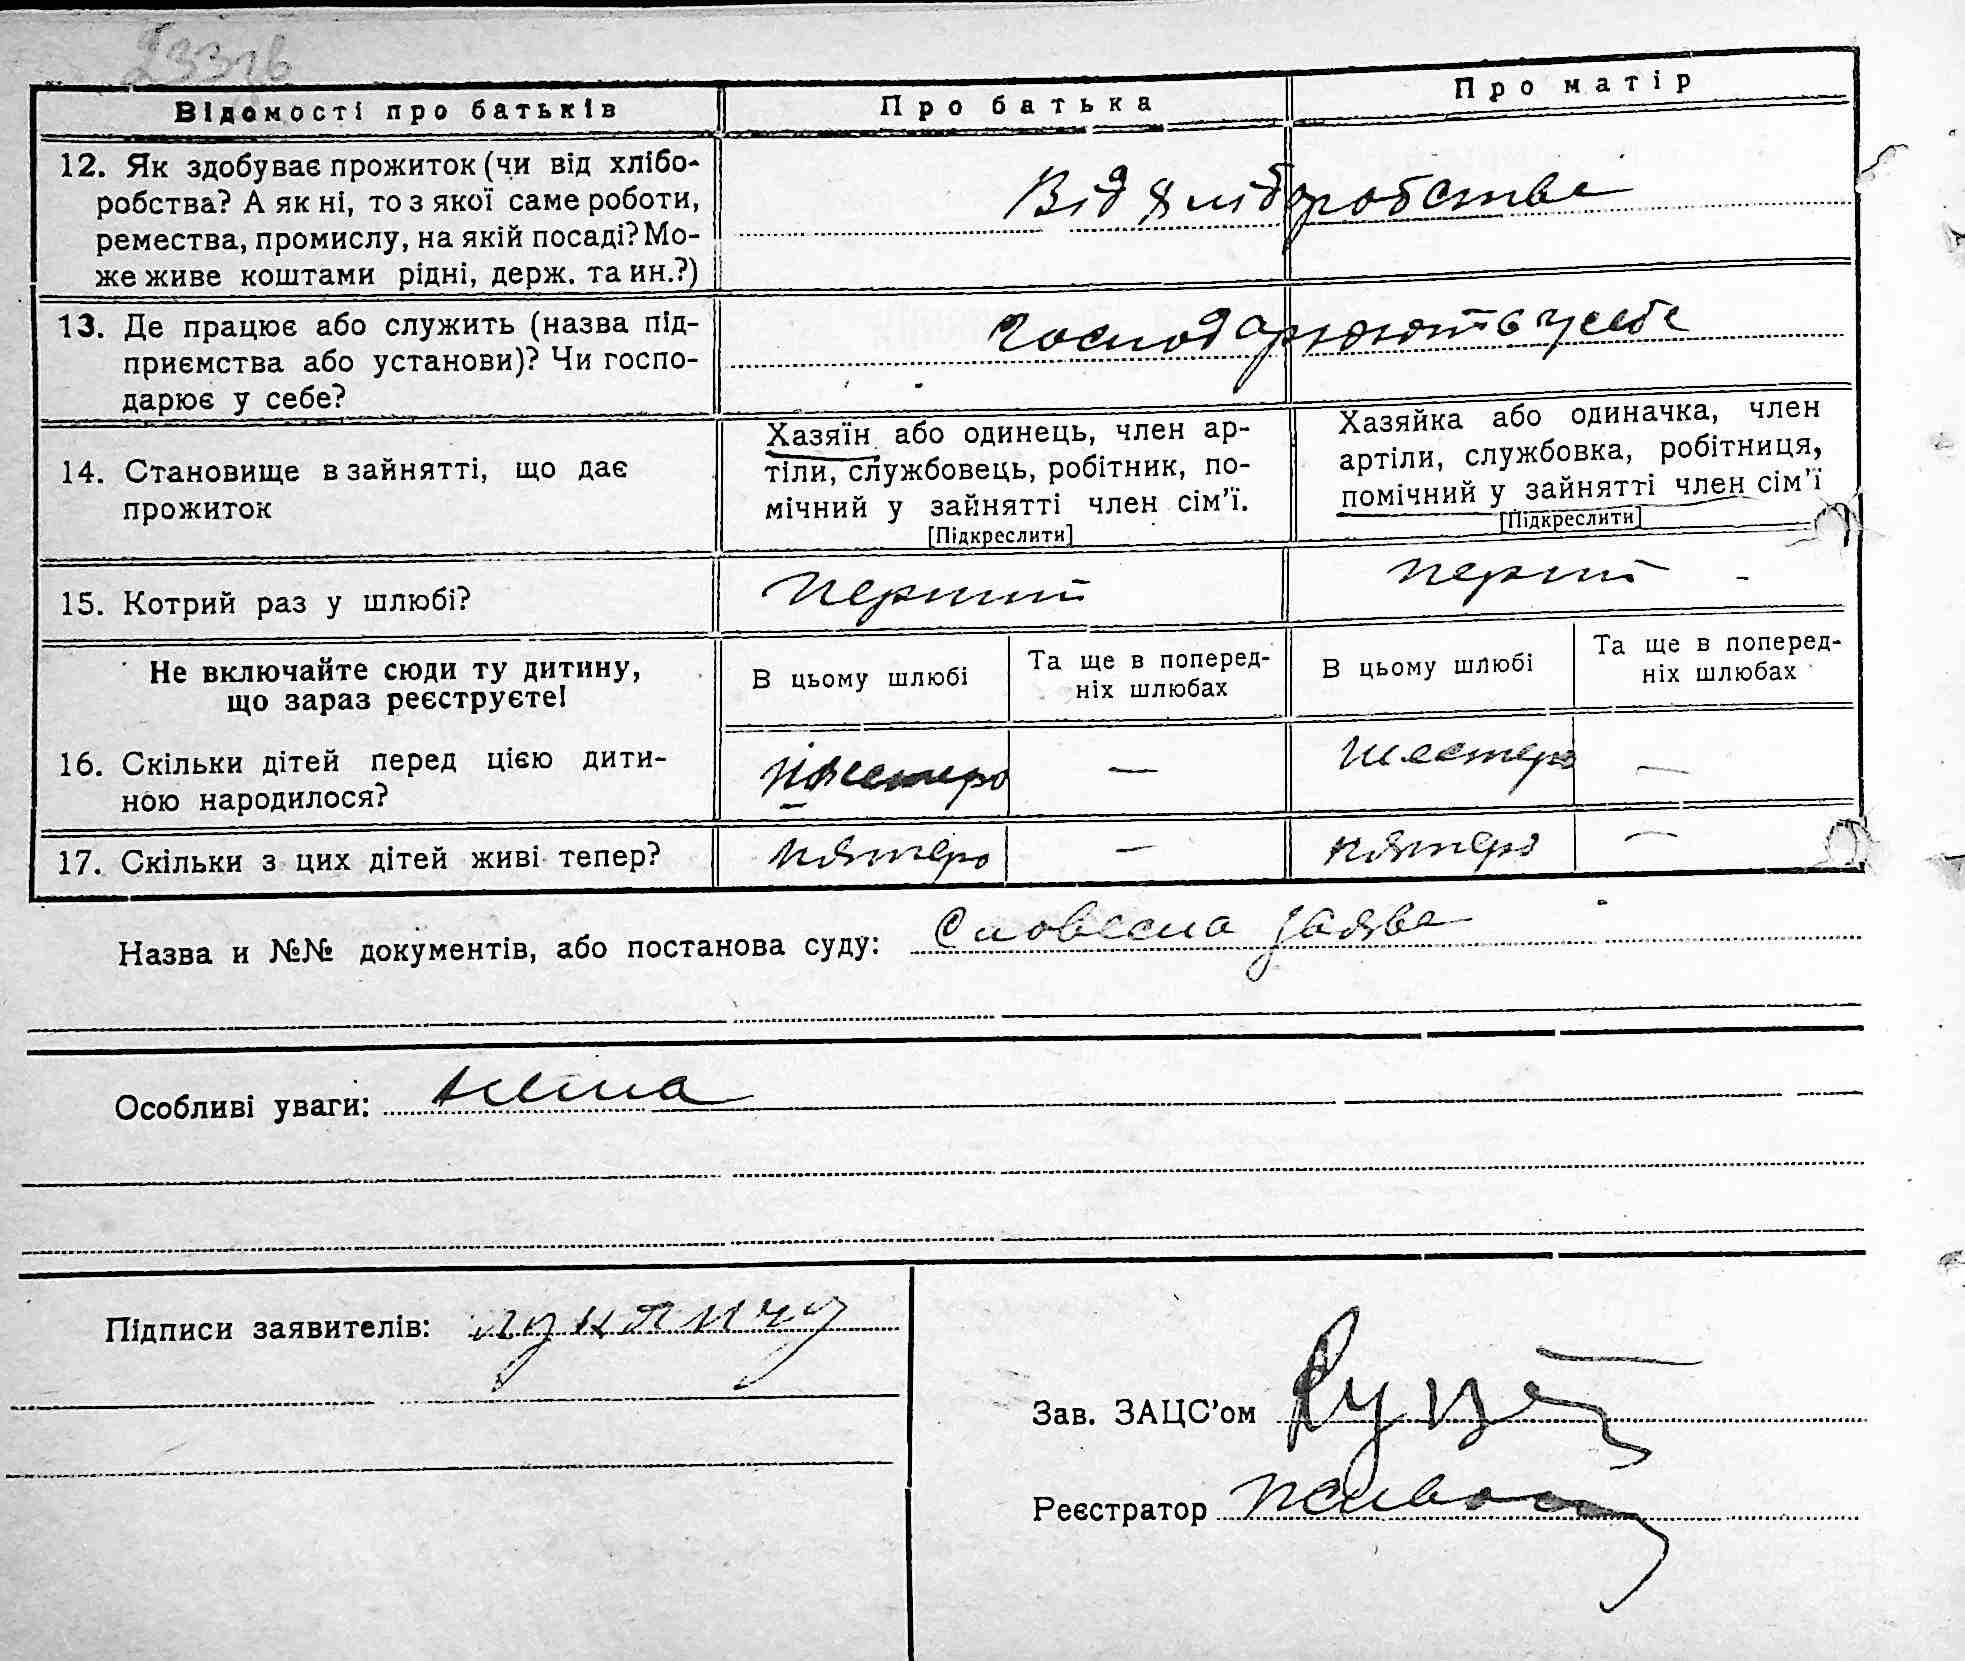 233зв
Відомості про батьків
Про батька
Про матір
12. Як здобуває прожиток (чи від хлібо-
робства? А як ні, то з якої саме роботи,
ремества, промислу, на якій посаді? Мо-
же живе коштами рідні, держ. та ин.?)
Від хліборобства
13. Де працює або служить (назва під-
приємства або установи)? Чи госпо-
дарює у себе?
господарюють у себе
14. Становище в зайнятті, що дає
прожиток
Хазяїн або одинець, член ар-
тіли, службовець, робітник, по-
мічний у зайнятті член сім'ї.
[Підкреслити]
Хазяйка або одиначка, член
артіли, службовка, робітниця,
помічний у зайнятті член сім'ї
[Підкреслити]
15. Котрий раз у шлюбі?
перший
перший -
Не включайте сюди ту дитину,
що зараз реєструєте!
В цьому шлюбі
Та ще в поперед-
ніх шлюбах
В цьому шлюбі
Та ще в поперед-
ніх шлюбах
16. Скільки дітей перед цією дити-
ною народилося?
шестеро
—
шестеро
—
17. Скільки з цих дітей живі тепер?
пятеро
—
пятеро
—
Назва и №№ документів, або постанова суду: Словесна заява
Особливі уваги: нема
Підписи заявителів:
Зав. ЗАЦС'ом
Реєстратор